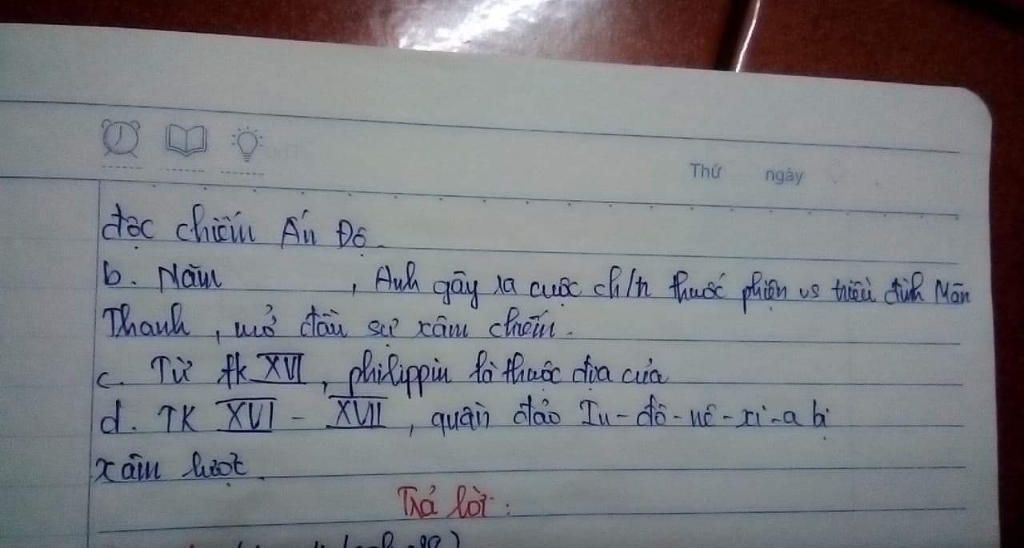 Thứ ngày
độc chiếm Ấn Độ.
b. Năm , Anh gây ra cuộc ch/tr thuốc phiện vs triều đình Mãn
Thanh, mở đầu sự xâm chiếm.
c. Từ tk XVI, philippin là thuộc địa của
d. TK XVI - XVII, quần đảo In-đô-nê-xi-a bị
xâm lược.
Trả lời: